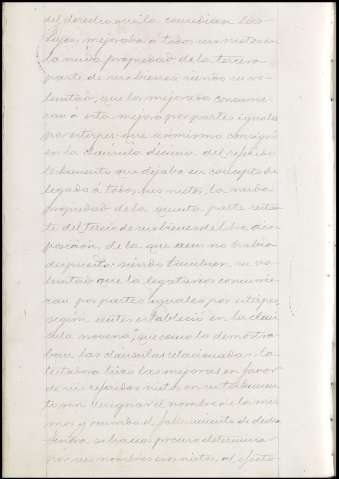 del derecho que la concedian las
Leyes mejoraba á todos sus nietos en
la nuda propiedad de la tercera
parte de sus bienes siendo su vo-
luntad, que los mejorados concurrie-
ran á esta mejora por partes iguales
por estirpes: que asimismo consignó
en la cláusula décima del referido
testamento que dejaba en concepto de
legado á todos sus nietos, la nuda
propiedad de la quinta parte restan-
te del tercio de sus bienes de libre dis-
posición, de la que no habia
dispuesto siendo tambien su vo-
luntad que los legatarios concurrie-
ran por partes iguales por estirpes,
según antes estableció en la cláu-
sula novena; que como lo demostra-
ban las cláusulas relacionadas, la
testadora hizo las mejoras en favor
de sus referidos nietos en su testamen-
to sin consignar el nombre de los mis-
mos y ocurrido el fallecimiento de dicha
Señora se hacia preciso determinar
por sus nombres esos nietos al efecto